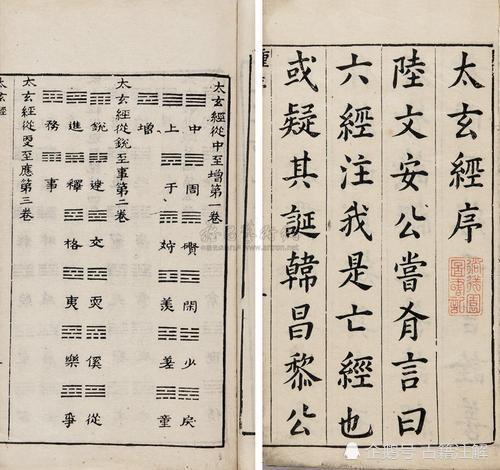 太玄經序
陸文安公嘗有言曰
六經注我是亡經也
或疑其誕韓昌黎公
太玄經從中至增第一卷
中 周 礥 閑 少 戾
上 于 狩 羨 差 童
增
太玄經從銳至事第二卷
銳 達 交 耎 傒 從
進 釋 格 夷 樂 爭
務 事
太玄經從更至應第三卷
太玄經
企鹅号 古籍注解